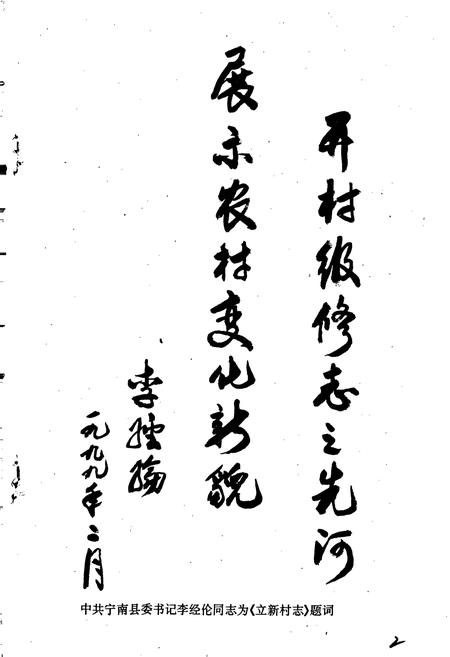 开村级修志之先河
展示农村变化新貌
李经纶
一九九九年二月
中共宁南县委书记李经伦同志为《立新村志》题词
2